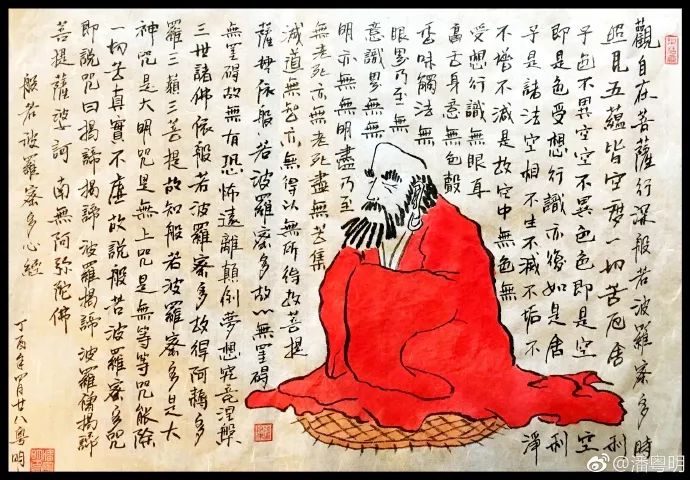 觀自在菩薩行深般若波羅蜜多時
照見五蘊皆空度一切苦厄舍利
子色不異空空不異色色即是空空
即是色受想行識亦復如是舍利
子是諸法空相不生不滅不垢不淨
不增不減是故空中無色無
受想行識無眼耳
鼻舌身意無色聲
香味觸法無
眼界乃至無
意識界無無
明亦無無明盡乃至
無老死亦無老死盡無苦集
滅道無智亦無得以無所得故菩提
薩埵依般若波羅蜜多故心無罣礙
無罣礙故無有恐怖遠離顛倒夢想究竟涅槃
三世諸佛依般若波羅蜜多故得阿耨多
羅三藐三菩提故知般若波羅蜜多是大
神咒是大明咒是無上咒是無等等咒能除
一切苦真實不虛故說般若波羅蜜多咒
即說咒曰揭諦揭諦波羅揭諦波羅僧揭諦
菩提薩婆訶 南無阿弥陀佛
般若波羅蜜多心經
丁酉年四月廿八粵明
@潘粤明